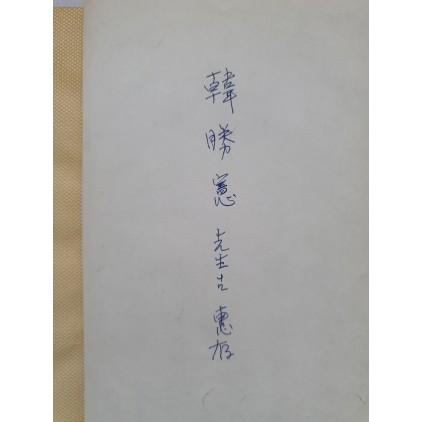 韓勝憲先生惠存